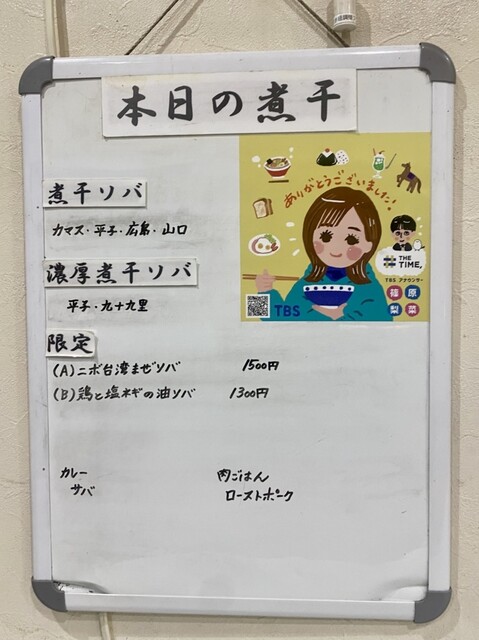 本日の煮干
煮干ソバ
カマス・平子・広島・山口
濃厚煮干ソバ
平子・九十九里
限定
(A)ニボ台湾まぜソバ 1500円
(B)鶏と塩ネギの油ソバ 1300円
カレー 肉ごはん
サバ ローストポーク
ありがとうございました!
THE TIME,
TBS アナウンサー
篠原
梨菜
TBS